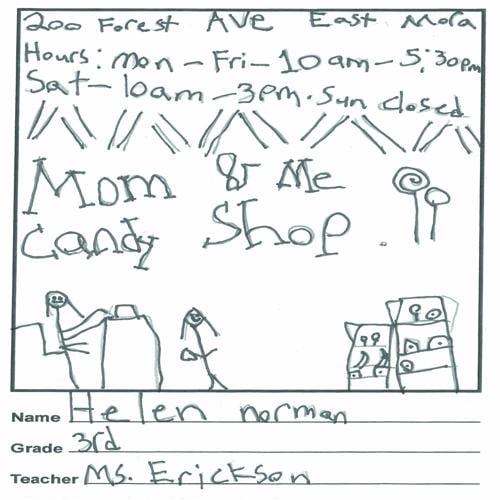 200 Forest AVE East Mora
Hours: mon - Fri - 10am - 5:30pm
Sat - 10am - 3pm. Sun closed
Mom & Me
Candy Shop.
Name Helen norman
Grade 3rd
Teacher Ms. Erickson